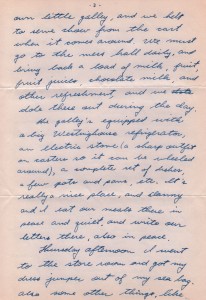 - 2 -
our little galley, and we help
to serve chow from the cart
when it comes around. We must
go to the mess hall daily, and
bring back a load of milk, fruit,
fruit juices, chocolate milk, and
other refreshment, and we
dole these out during the day.
The galley is equipped with
a big Westinghouse refrigerator,
an electric stove (a sharp outfit
on casters so it can be wheeled
around), a complete set of dishes,
a few pots and pans, etc. It's
really a nice place, and
and I eat our meals there in
peace and quiet, and write our
letters there, also in peace.
Thursday afternoon I went
to the store room and got my
dress jumper out of my sea bag,
also some other things, like